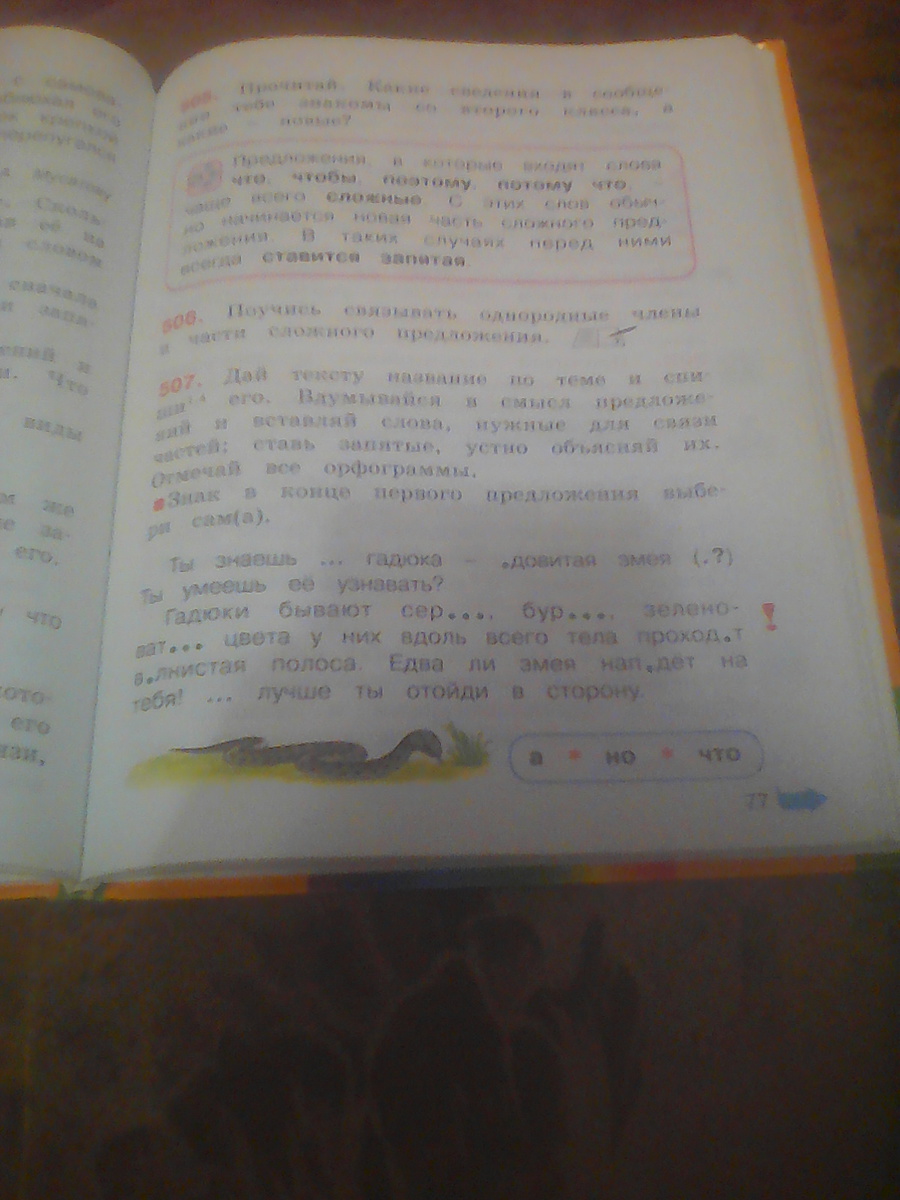 с самова-
505. Прочитай. Какие сведения в сообще-
нии тебе знакомы со второго класса, а
какие – новые?
Предложения, в которые входят слова
что, чтобы, поэтому, потому что, –
чаще всего сложные. С этих слов обыч-
но начинается новая часть сложного пред-
ложения. В таких случаях перед ними
всегда ставится запятая.
506. Поучись связывать однородные члены
и части сложного предложения.
507. Дай тексту название по теме и спи-
ши его. Вдумывайся в смысл предложе-
ний и вставляй слова, нужные для связи
частей; ставь запятые, устно объясняй их.
Отмечай все орфограммы.
Знак в конце первого предложения выбе-
ри сам(а).
Ты знаешь ... гадюка – .довитая змея (.?)
Ты умеешь её узнавать?
Гадюки бывают сер..., бур..., зелено-
ват... цвета у них вдоль всего тела проход.т
в.лнистая полоса. Едва ли змея нап.дёт на
тебя! ... лучше ты отойди в сторону.
а * но * что
77
черепугался
словом
сначала
и запя-
ений и
и. Что
виды
же
е за-
его.
что
его
язи,